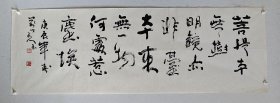 菩提本
無樹
明鏡亦
非臺
本來
無一物
何處惹
塵埃
庚辰年